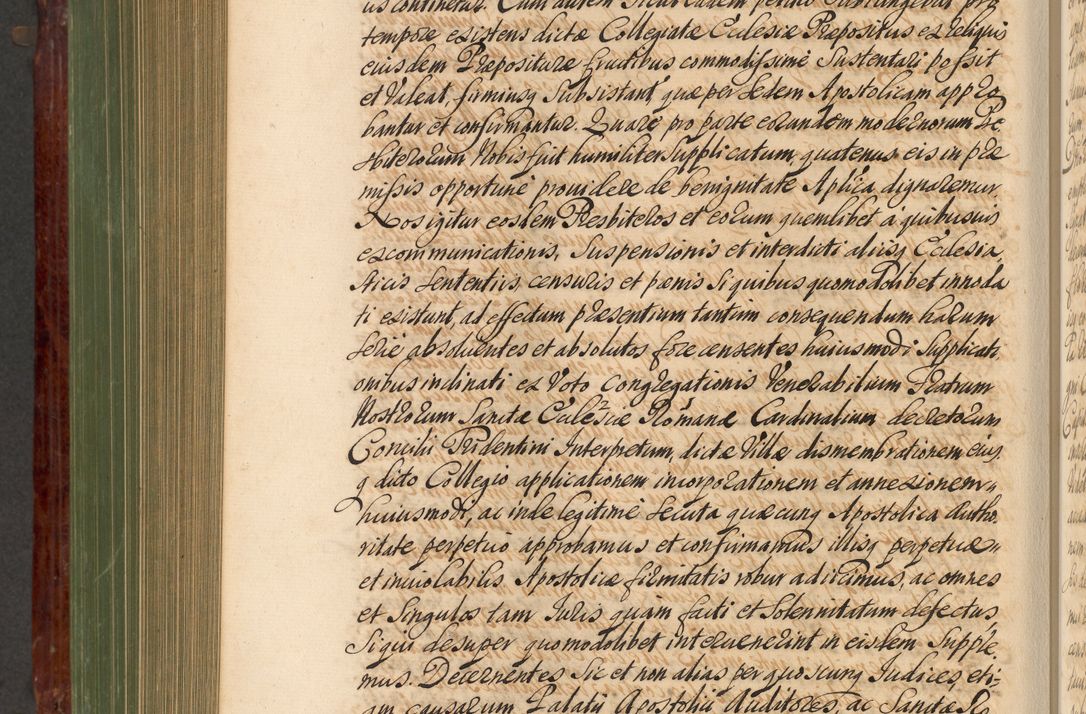 us continetur. Cum autem sicut eadem petitio subiungebat pro
tempore existens dictæ Collegiatæ Ecclesiæ Præpositus ex reliquis
eiusdem Præpositurę fructibus commodissimè sustentari possit
et Valeat, firmiusq subsistant quæ per Sedem Apostolicam appro
bantur et confirmantur. Quare pro parte eorundem modernorum Pre
sbiterorum Nobis fuit humiliter supplicatum, quatenus eis in præ
missis opportunè prouidere de benignitate Aplica dignaremur.
Nos igitur eosdem Presbiteros et eorum quemlibet a quibusuis
excommunicationis, suspensionis et interdicti alijsq Ecclesia
sticis sententijs, censuris et pœnis si quibus quomodolibet innoda
ti existunt, ad effectum præsentium tantum consequendum harum
serie absoluentes et absolutos fore censentes huiusmodi supplicati
onibus inclinati ex Voto Congregationis Venerabilium Fratrum
Nostrorum Sanctæ Ecclesiæ Romanæ Cardinalium decretorum
Concilij Tridentini Interpretum, dictæ Villæ dismembrationem eiusq
q dicto Collegio applicationem incorporationem et annexionem
huiusmodi, ac inde legitimè secuta quæcunq Apostolica Autho
ritate perpetuò approbamus et confirmamus illisq perpetuæ
et inuiolabilis Apostolicæ firmitatis robur adijcimus, ac omnes
et singulos tam Iuris quàm facti et solennitatum defectus
siqui desuper quomodolibet interuenerint in eisdem supple
mus. Decernentes sic et non alias per quoscunq Iudices eti-
am causarum Palatij Apostolici Auditores, ac Sanctæ Ro